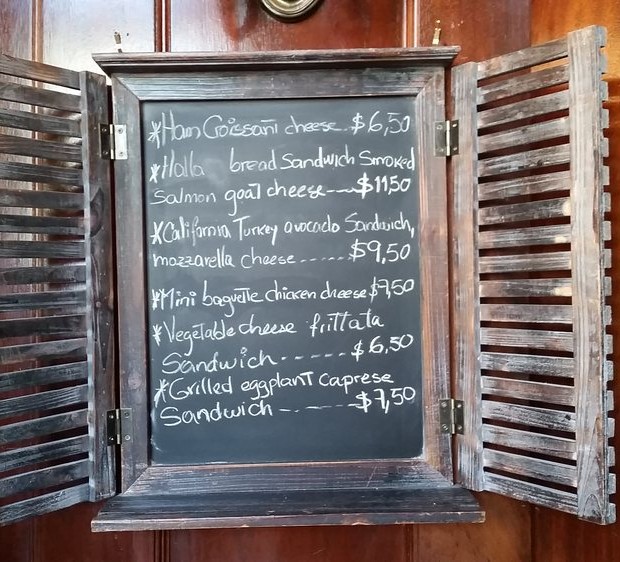 *Ham Croissant cheese..$6,50
*Halla bread Sandwich Smoked
Salmon goat cheese----$11,50
*California Turkey avocado Sandwich,
mozzarella cheese......$9,50
*Mini baguette chicken cheese $9,50
*Vegetable cheese frittata
Sandwich------$6,50
*Grilled eggplant Caprese
Sandwich------$7,50